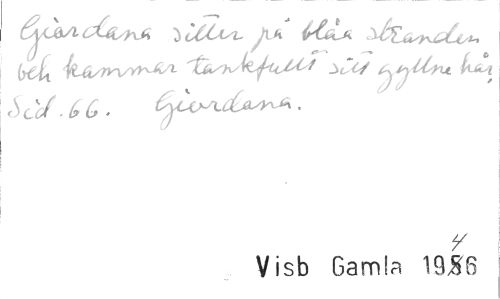 Giordana sitter på blåa stranden
och kammar tankfullt sitt gyllne hår.
Sid. 66. Giordana.
Visb Gamla 1946